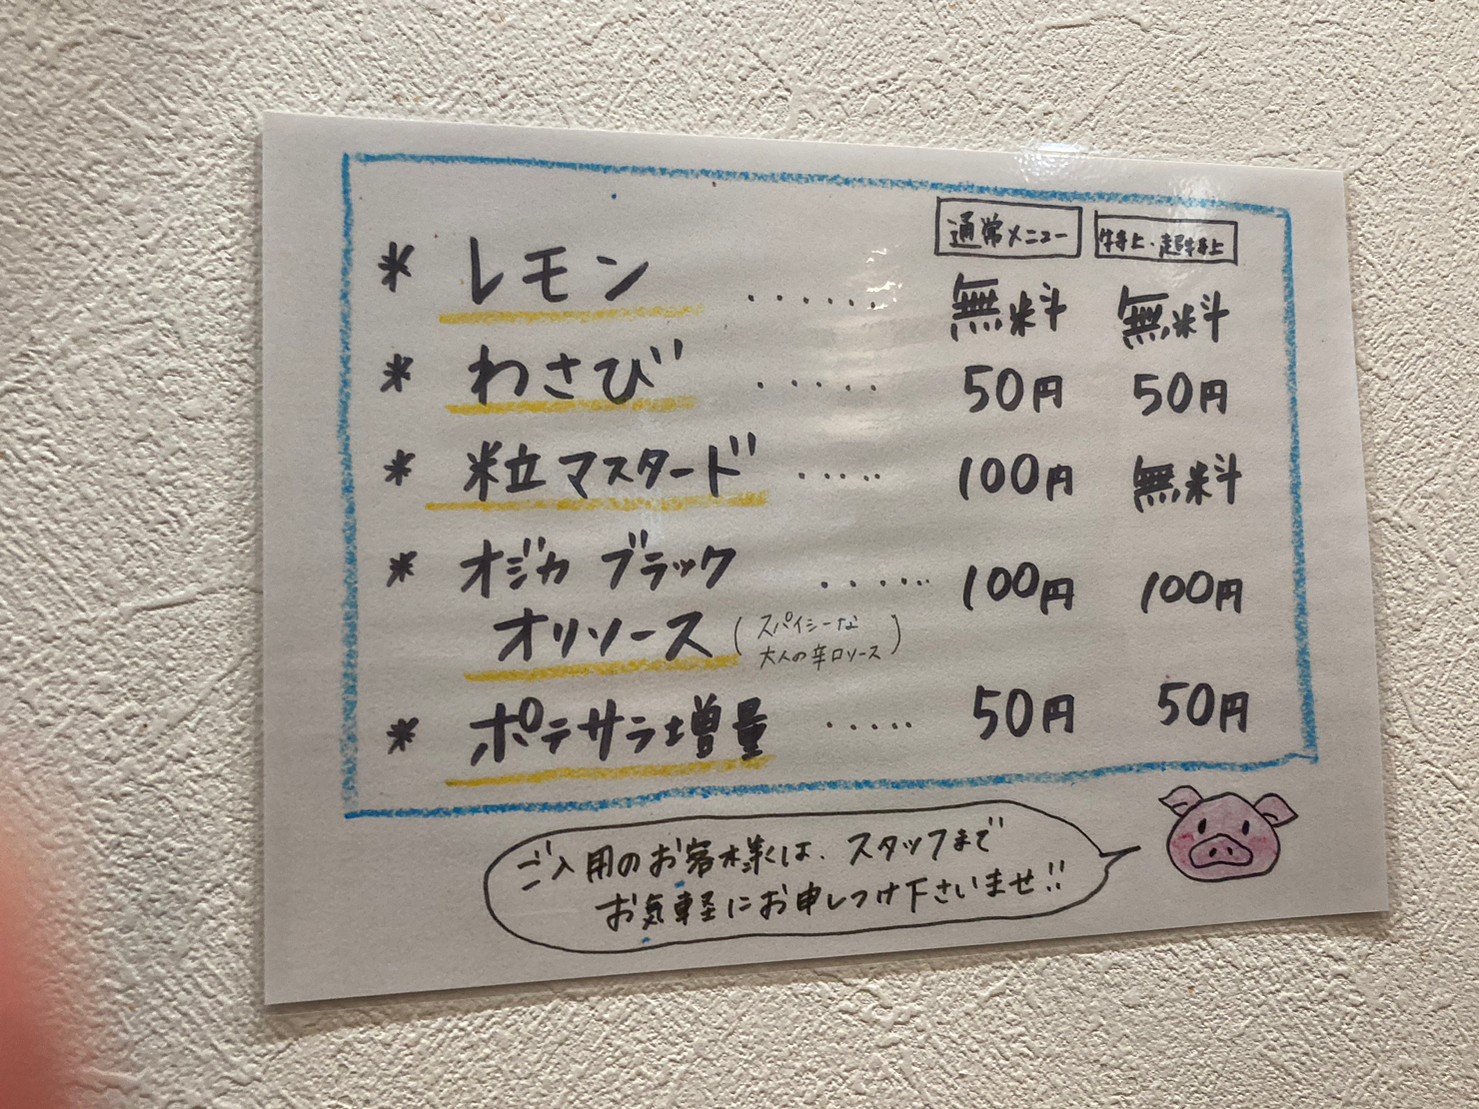 通常メニュー 特上・超特上
* レモン ...... 無料 無料
* わさび ...... 50円 50円
* 粒マスタード ..... 100円 無料
* オジカ ブラック ...... 100円 100円
オリソース (スパイシーな
大人の辛口ソース)
* ポテサラ増量 ..... 50円 50円
ご入用のお客様は、スタッフまで
お気軽にお申しつけ下さいませ!!